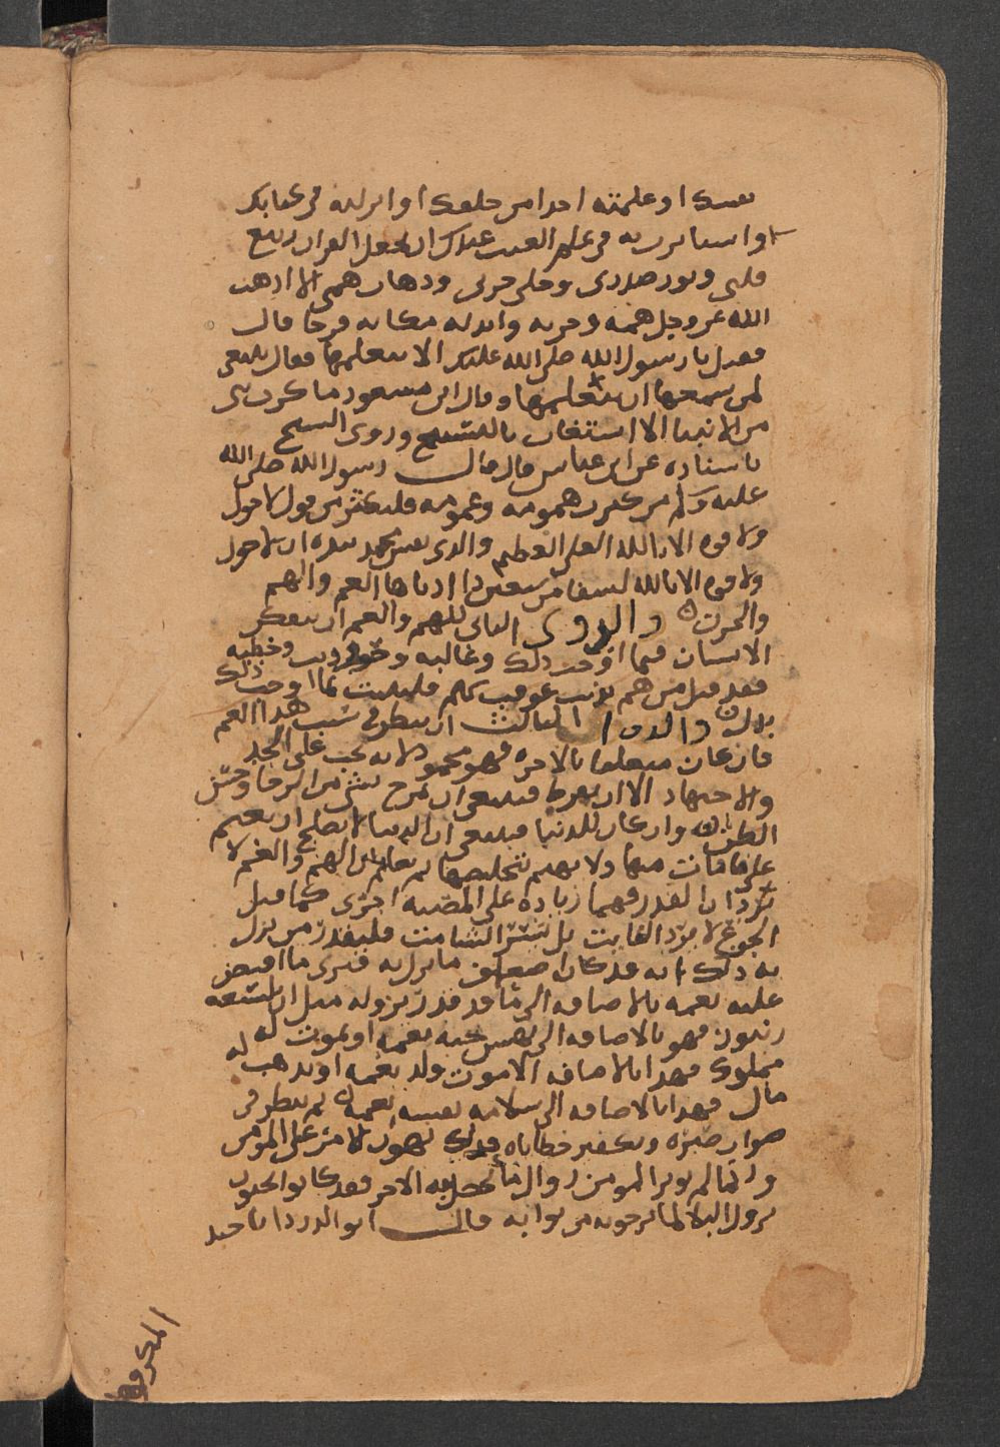 نفسك او علمته احدا من خلقك او انزلته في كتابك
او استاثرت به في علم الغيب عندك ان تجعل القران ربيع
قلبي ونور صدري وجلى حزني وذهاب همي الا اذهب
الله عز وجل همه وحزنه وابدله مكانه فرحا قال
فقيل يا رسول الله صلى الله عليك الا نتعلمها فقال ينبغي
لمن سمعها ان يتعلمها وقال ابن مسعود ما كرب نبي
من الانبيا الا استغاث بالتسبيح وروى الشيخ
باسناده عن ابن عباس قال قال رسول الله صلى الله
عليه وسلم من كثرت همومه وغمومه فليكثر من قول لا حول
ولا قوه الا بالله العلي العظيم والذي نفس محمد بيده ان لا حول
ولا قوه الا بالله لشفا من سبعين دا ادناها الغم والهم
والحزن والدوى الثاني للهم والغم ان يفكر
الانسان فيما اوجب ذلك وغالبه وخوف ذنب وخطيه
فقد قيل من هم بذنب عوقب بهم فليتب مما اوجب ذلك
والدوا الثالث ان ينظر في سبب هذا الغم
فان كان متعلقا بالاخره فهو محمود لانه يحث على الجد
والاجتهاد الا ان يفرط فينبغي ان يمزج بشي من الرجا وحسن
الظن وان كان للدنيا فينبغي ان الدنيا لا تصلح ان يغتم
على ما فات منها ولا يهتم بتحصيلها ثم يعلم ان الهم والغم لا
يردان القدر فهما زياده على المصيبه اخرى كما قيل
الجزع لا يرد الفايت بل يسر الشامت فليقدر من نزل
به ذلك انه قد كان اضعاف ما نزل به فيرى ما اقتضى
عليه نعمه بالاضافه الى ما قد قدر نزوله مثل ان تلسعه
زنبور فهو بالاضافه الى نهس حيه نعمه او يموت له
مملوك فهذا بالاضافه الا موت ولد نعمه او يذهب له
مال فهذا بالاضافه الى سلامه نفسه نعمه ثم ينظر في
ثواب صبره وتكفير خطاياه فذلك يهون الامر على المومن
وانما لم يوثر المومن زوال ما يحصل به الاجر فقد كانوا يحبون
نزول البلا لما يرجونه من ثوابه قال ابو الدردا يا حبذ
المكروها